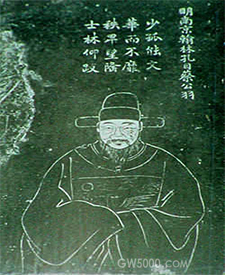 明南京翰林孔目蔡公羽
少孤能文
華而不靡
秩卑望隆
士林仰
GW5000.com